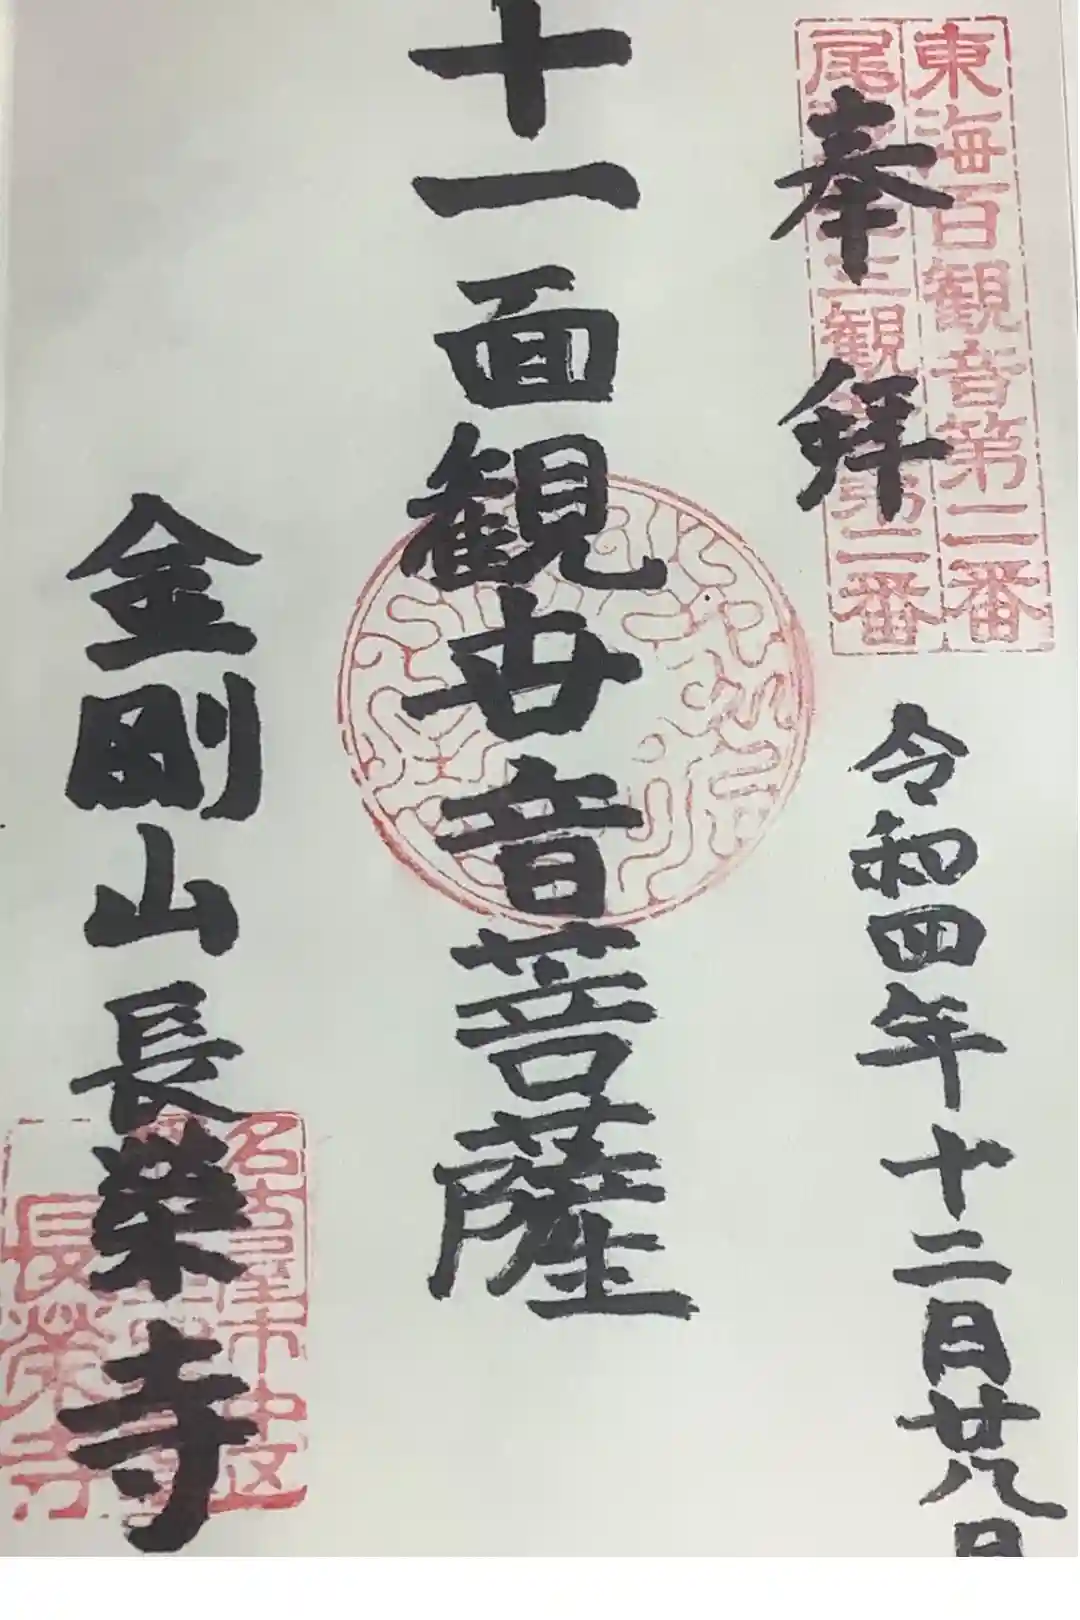 東海百観音第二番
尾三観第二番
奉拝
令和四年十二月廿八日
十一面観世音菩薩
金剛山長榮寺
名古屋市中区
長榮寺